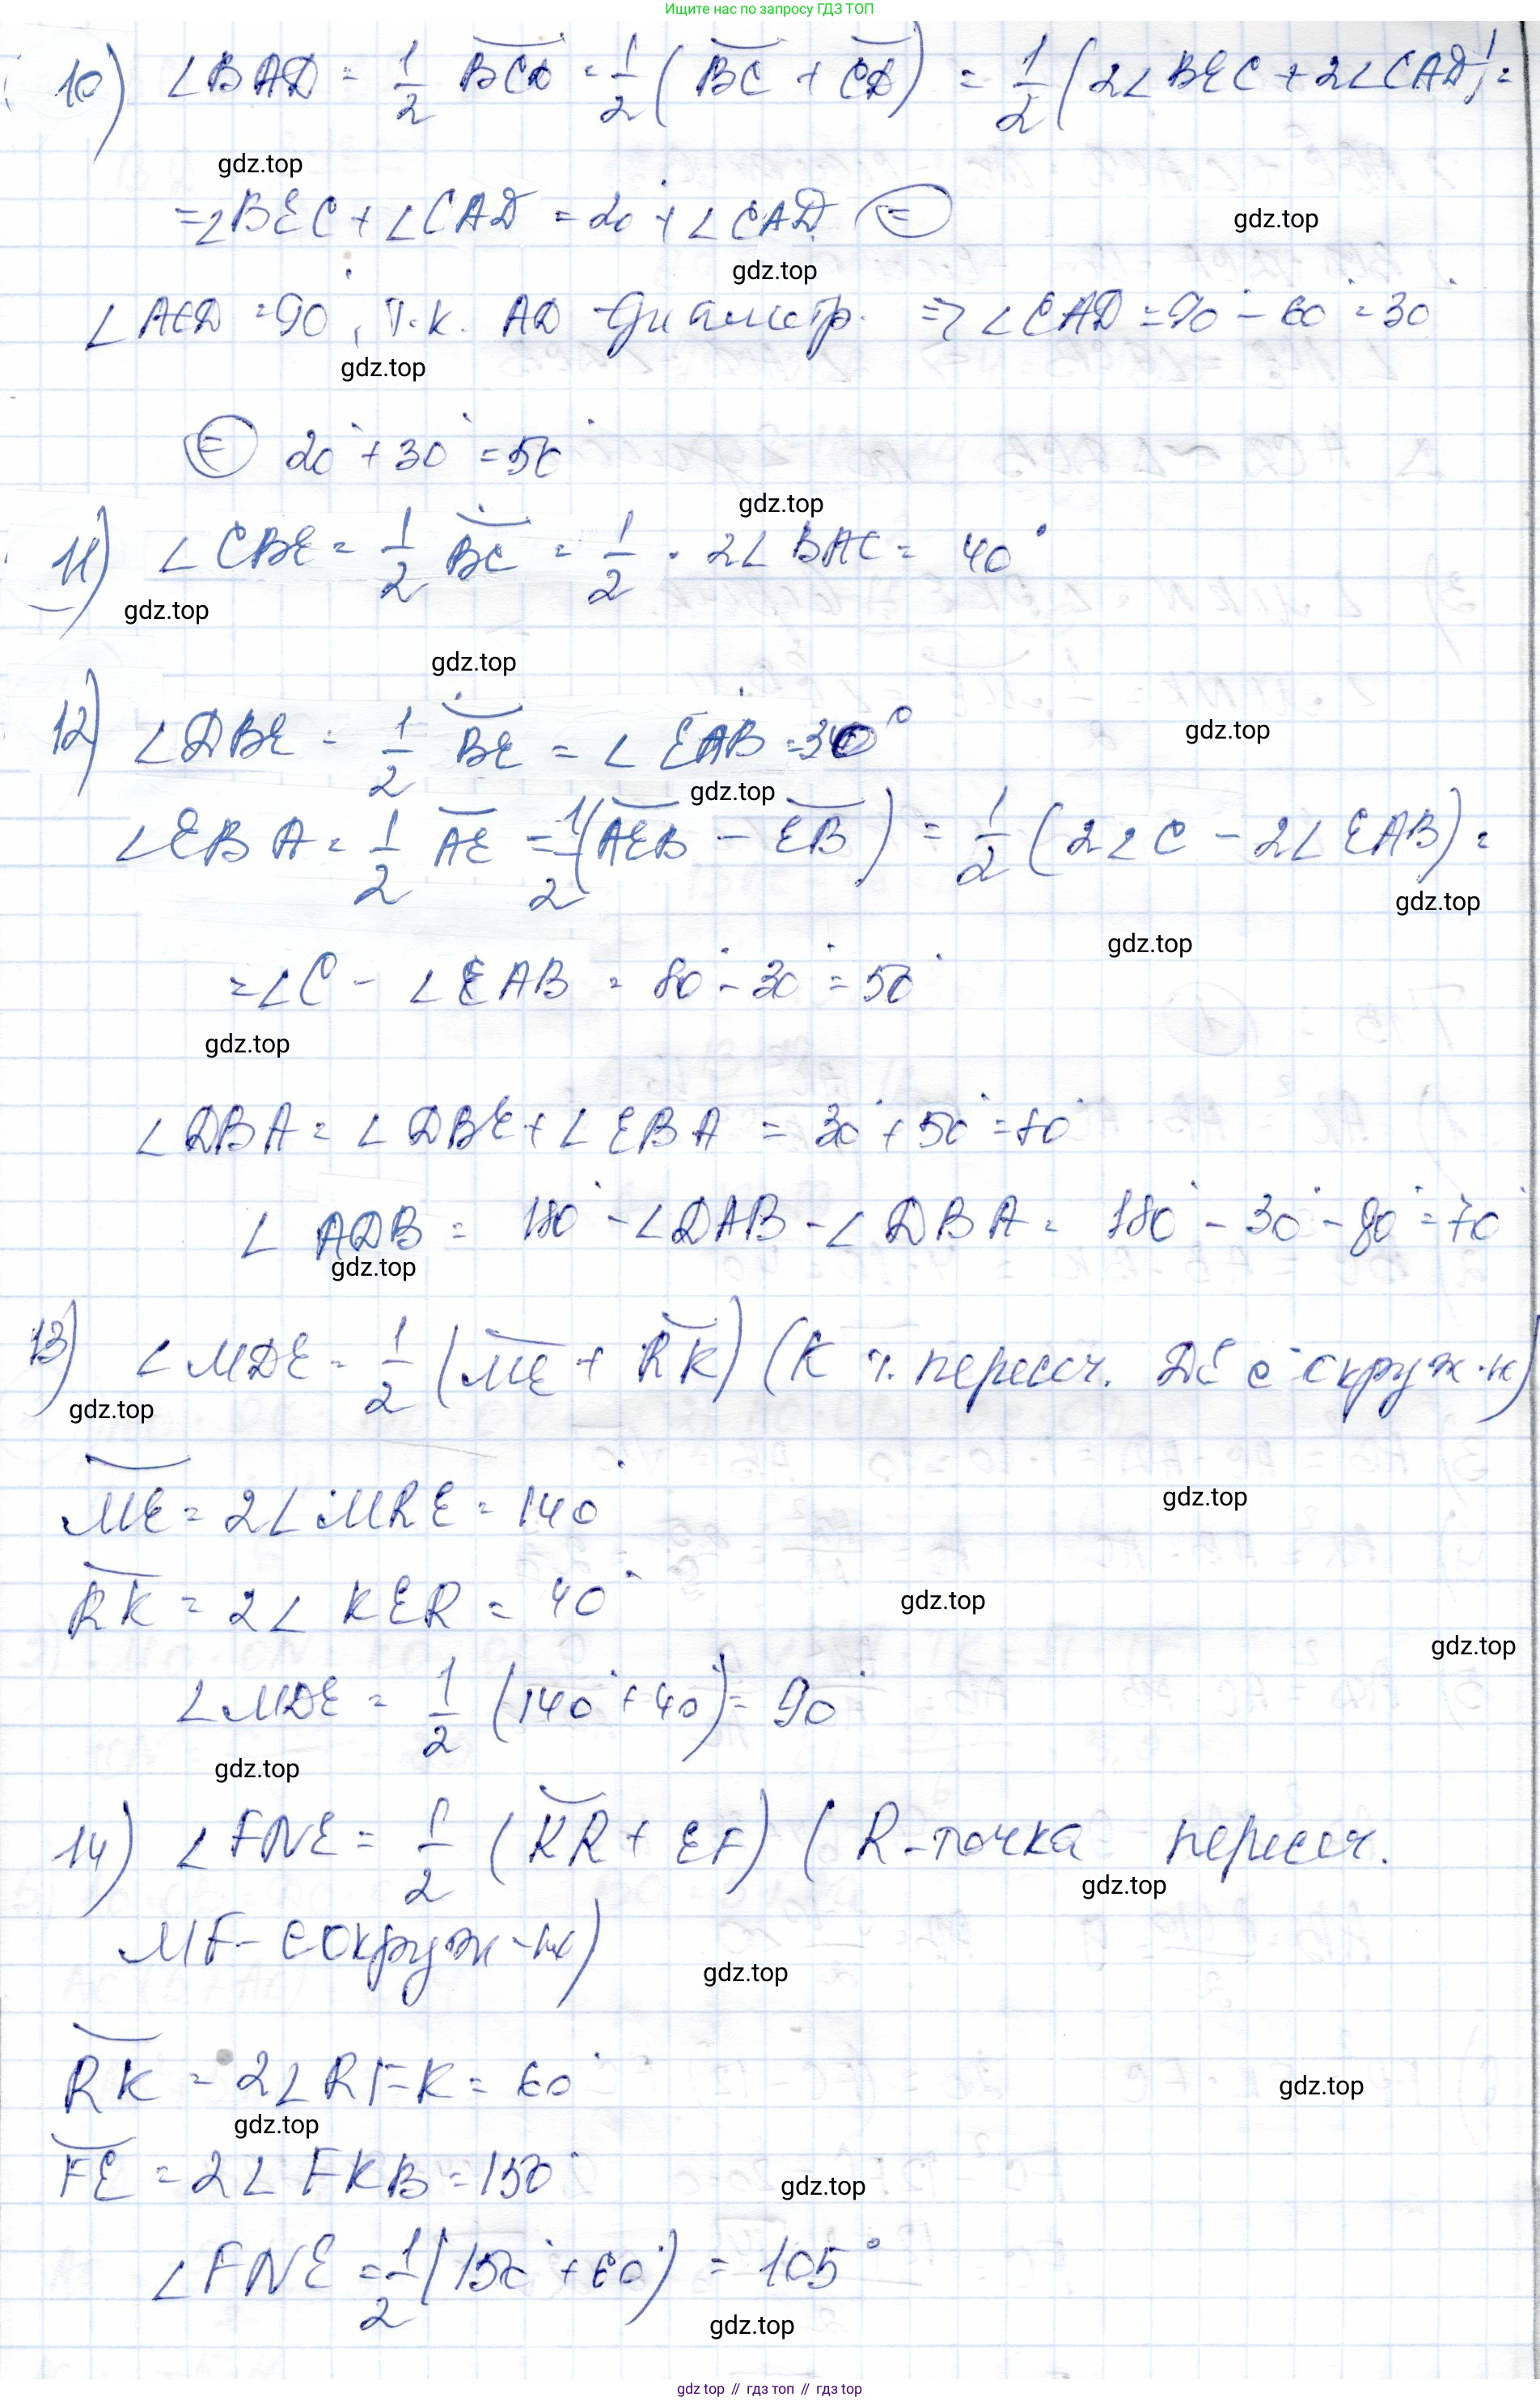 Ищите нас по запросу ГДЗ ТОП
10) ∠BAD = 1/2 BCD = 1/2 (BC + CD) = 1/2 (2∠BEC + 2∠CAD) =
gdz.top
= ∠BEC + ∠CAD = 20° + ∠CAD (=)
gdz.top
gdz.top
∠ACD = 90°, т.к. AD - диаметр. => ∠CAD = 90° - 60° = 30°
gdz.top
(=) 20° + 30° = 50°
gdz.top
11) ∠CBE = 1/2 BC = 1/2 · 2∠BAC = 40°
gdz.top
gdz.top
12) ∠DBE = 1/2 BE = ∠EAB = 30°
gdz.top
gdz.top
∠EBA = 1/2 AE = 1/2 (AEB - EB) = 1/2 (2∠C - 2∠EAB) =
gdz.top
gdz.top
= ∠C - ∠EAB = 80° - 30° = 50°
gdz.top
∠DBA = ∠DBE + ∠EBA = 30° + 50° = 80°
∠ADB = 180° - ∠DAB - ∠DBA = 180° - 30° - 80° = 70°
gdz.top
13) ∠MDE = 1/2 (ME + RK) (K т. пересеч. DE с окруж-ю)
gdz.top
gdz.top
ME = 2∠MRE = 140°
RK = 2∠KER = 40°
gdz.top
gdz.top
∠MDE = 1/2 (140° + 40°) = 90°
gdz.top
14) ∠FNE = 1/2 (KR + EF) (R - точка пересеч.
gdz.top
MF - с окруж-ю)
gdz.top
RK = 2∠RFK = 60°
gdz.top
gdz.top
FE = 2∠FKB = 150°
gdz.top
∠FNE = 1/2 (150° + 60°) = 105°
gdz.top
gdz top // гдз топ // гдз top